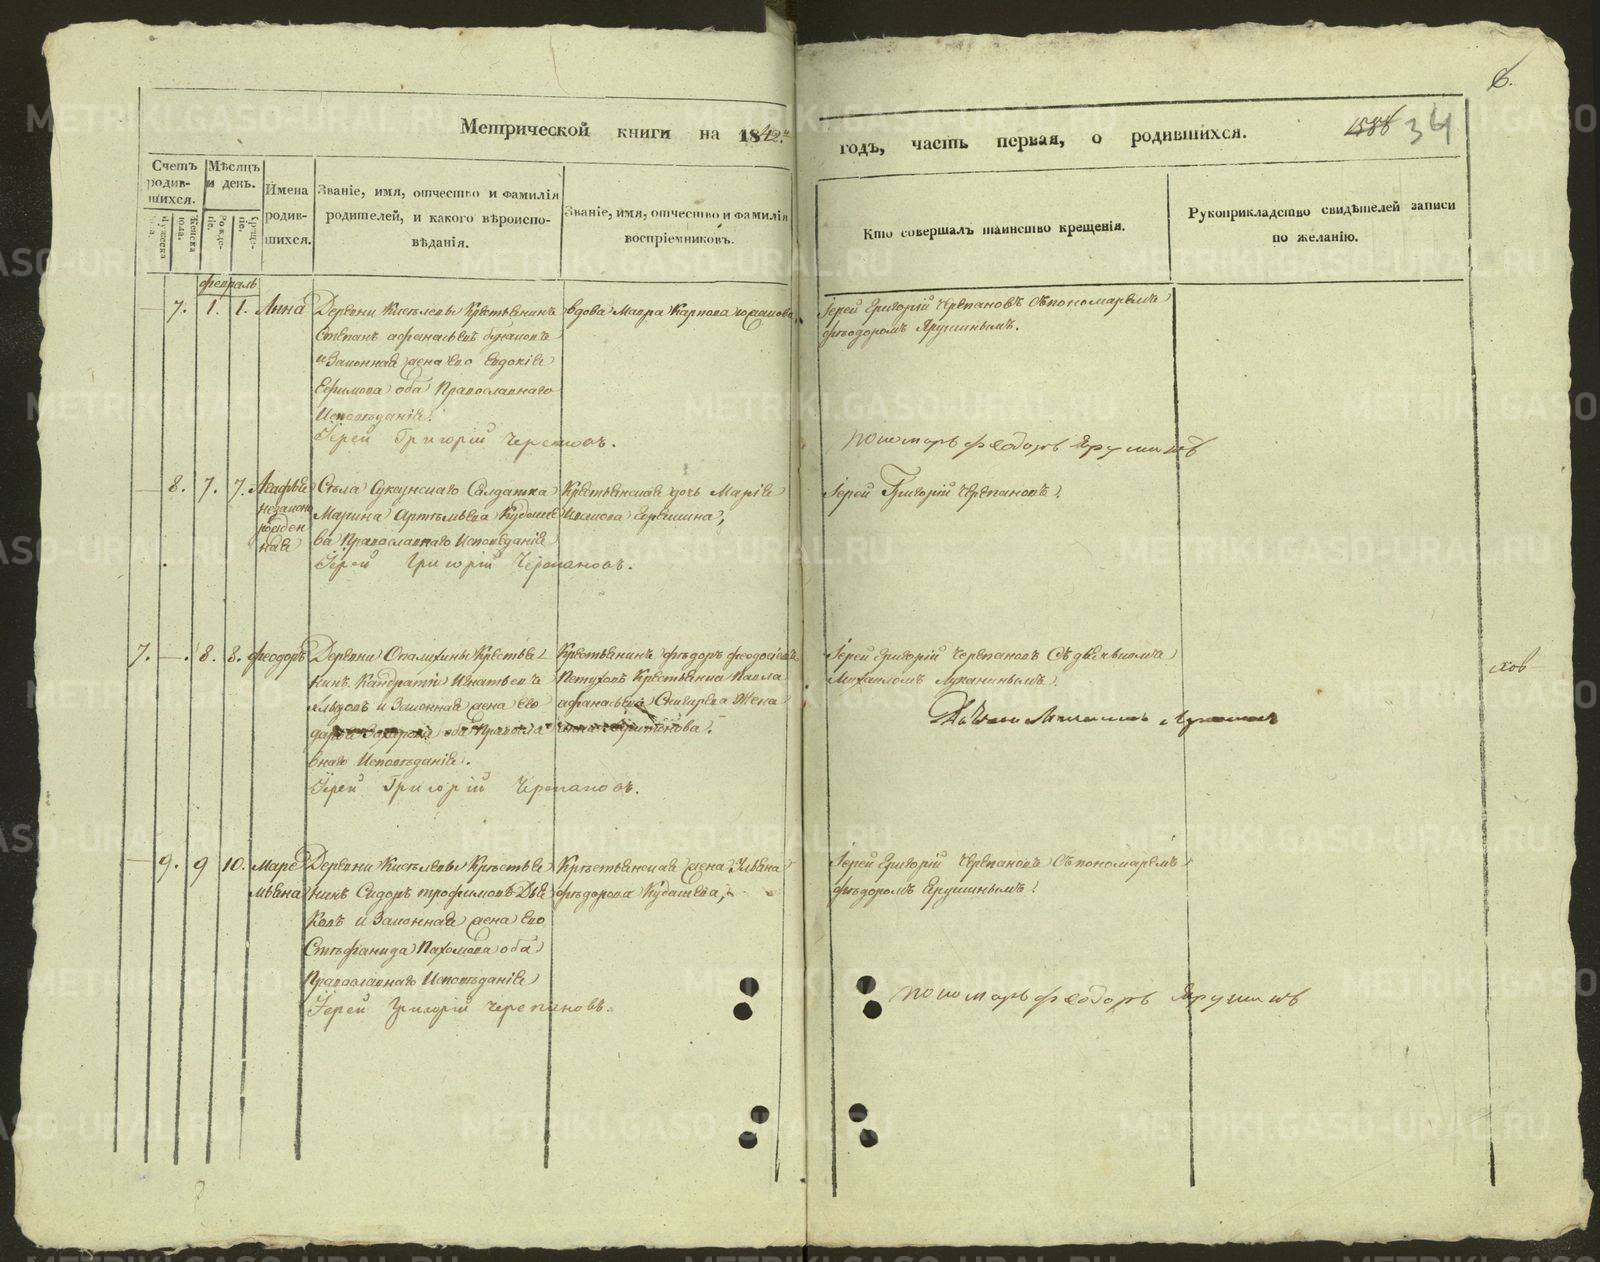 6.
Метрической книги на 1842.й
годъ, часть первая, о родившихся.
1588 34
Счетъ родив-шихся.
Мѣсяцъ и день.
Имена родив-шихся.
Званіе, имя, отчество и фамилія
родителей, и какого вѣроиспо-
вѣданія.
Званіе, имя, отчество и фамилія
воспріемниковъ.
Кто совершалъ таинство крещенія.
Рукоприкладство свидѣтелей записи
по желанію.
Мужеска пола.
Женска пола.
Рожде-ніе.
Креще-ніе.
февраль
7. 1. 1. Анна
Деревни Киселевы Крестьянинъ
Стефанъ Афанасьевъ
и Законная жена его Евдокія
Ефимова оба Православнаго
Исповѣданія.
Іерей Григорій Черепановъ.
вдова Мавра Карпова
Іерей Григорій Черепановъ съ пономаремъ
Феодоромъ Ярушинымъ.
пономарь Феодоръ Ярушинъ
8. 7. 7. Агафья
незаконо
рожден
ная
Села Суксунскаго Салдатка
Марина Артемьева Кудаше
ва Православнаго Исповѣданія
Іерей Григорій Черепановъ.
Крестьянская дочь Марія
Иванова
Іерей Григорій Черепановъ.
7. —. 8. 8. Феодоръ
Деревни Опалихины Крестья
нинъ Кандратій Игнатьевъ
и Законная жена его
оба Правосла
внаго Исповѣданія.
Іерей Григорій Черепановъ.
Крестьянинъ Федоръ Феодосіевъ
Петуховъ Крестьянина Павла
Афанасьева Снигирева Жена
Харитонова.
Іерей Григорій Черепановъ Съ дьячкомъ
Михаиломъ Луканинымъ.
Дьячекъ Михаилъ Луканинъ
9. 9 10. Маре
мьяна
Деревни Киселевы Крестья
нинъ Сидоръ Трофимовъ Дья
ковъ и Законная жена его
Стефанида Пахомова оба
Православнаго Исповѣданія
Іерей Григорій Черепановъ.
Крестьянская жена Ульяна
Федорова Кудашева,
Іерей Григорій Черепановъ Съ пономаремъ
Федоромъ Ярушинымъ.
пономарь Феодоръ Ярушинъ
METRIKI.GASO-URAL.RU